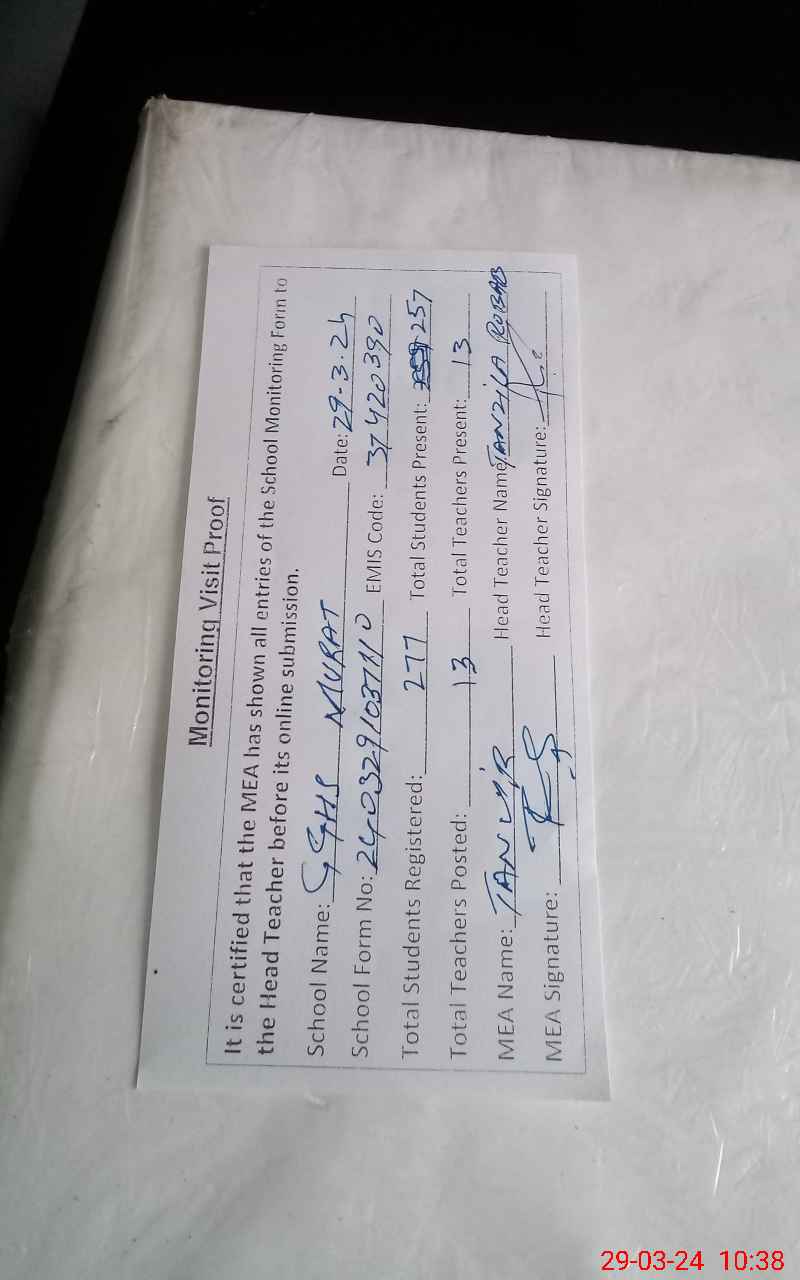 Monitoring Visit Proof
It is certified that the MEA has shown all entries of the School Monitoring Form to
the Head Teacher before its online submission.
School Name: GGHS MURAT Date: 29-3-24
School Form No: 2403291037110 EMIS Code: 37420390
Total Students Registered: 277 Total Students Present: 257
Total Teachers Posted: 13 Total Teachers Present: 13
MEA Name: TANVIR Head Teacher Name: TANZILA ROBAB
MEA Signature: Head Teacher Signature:
29-03-24 10:38